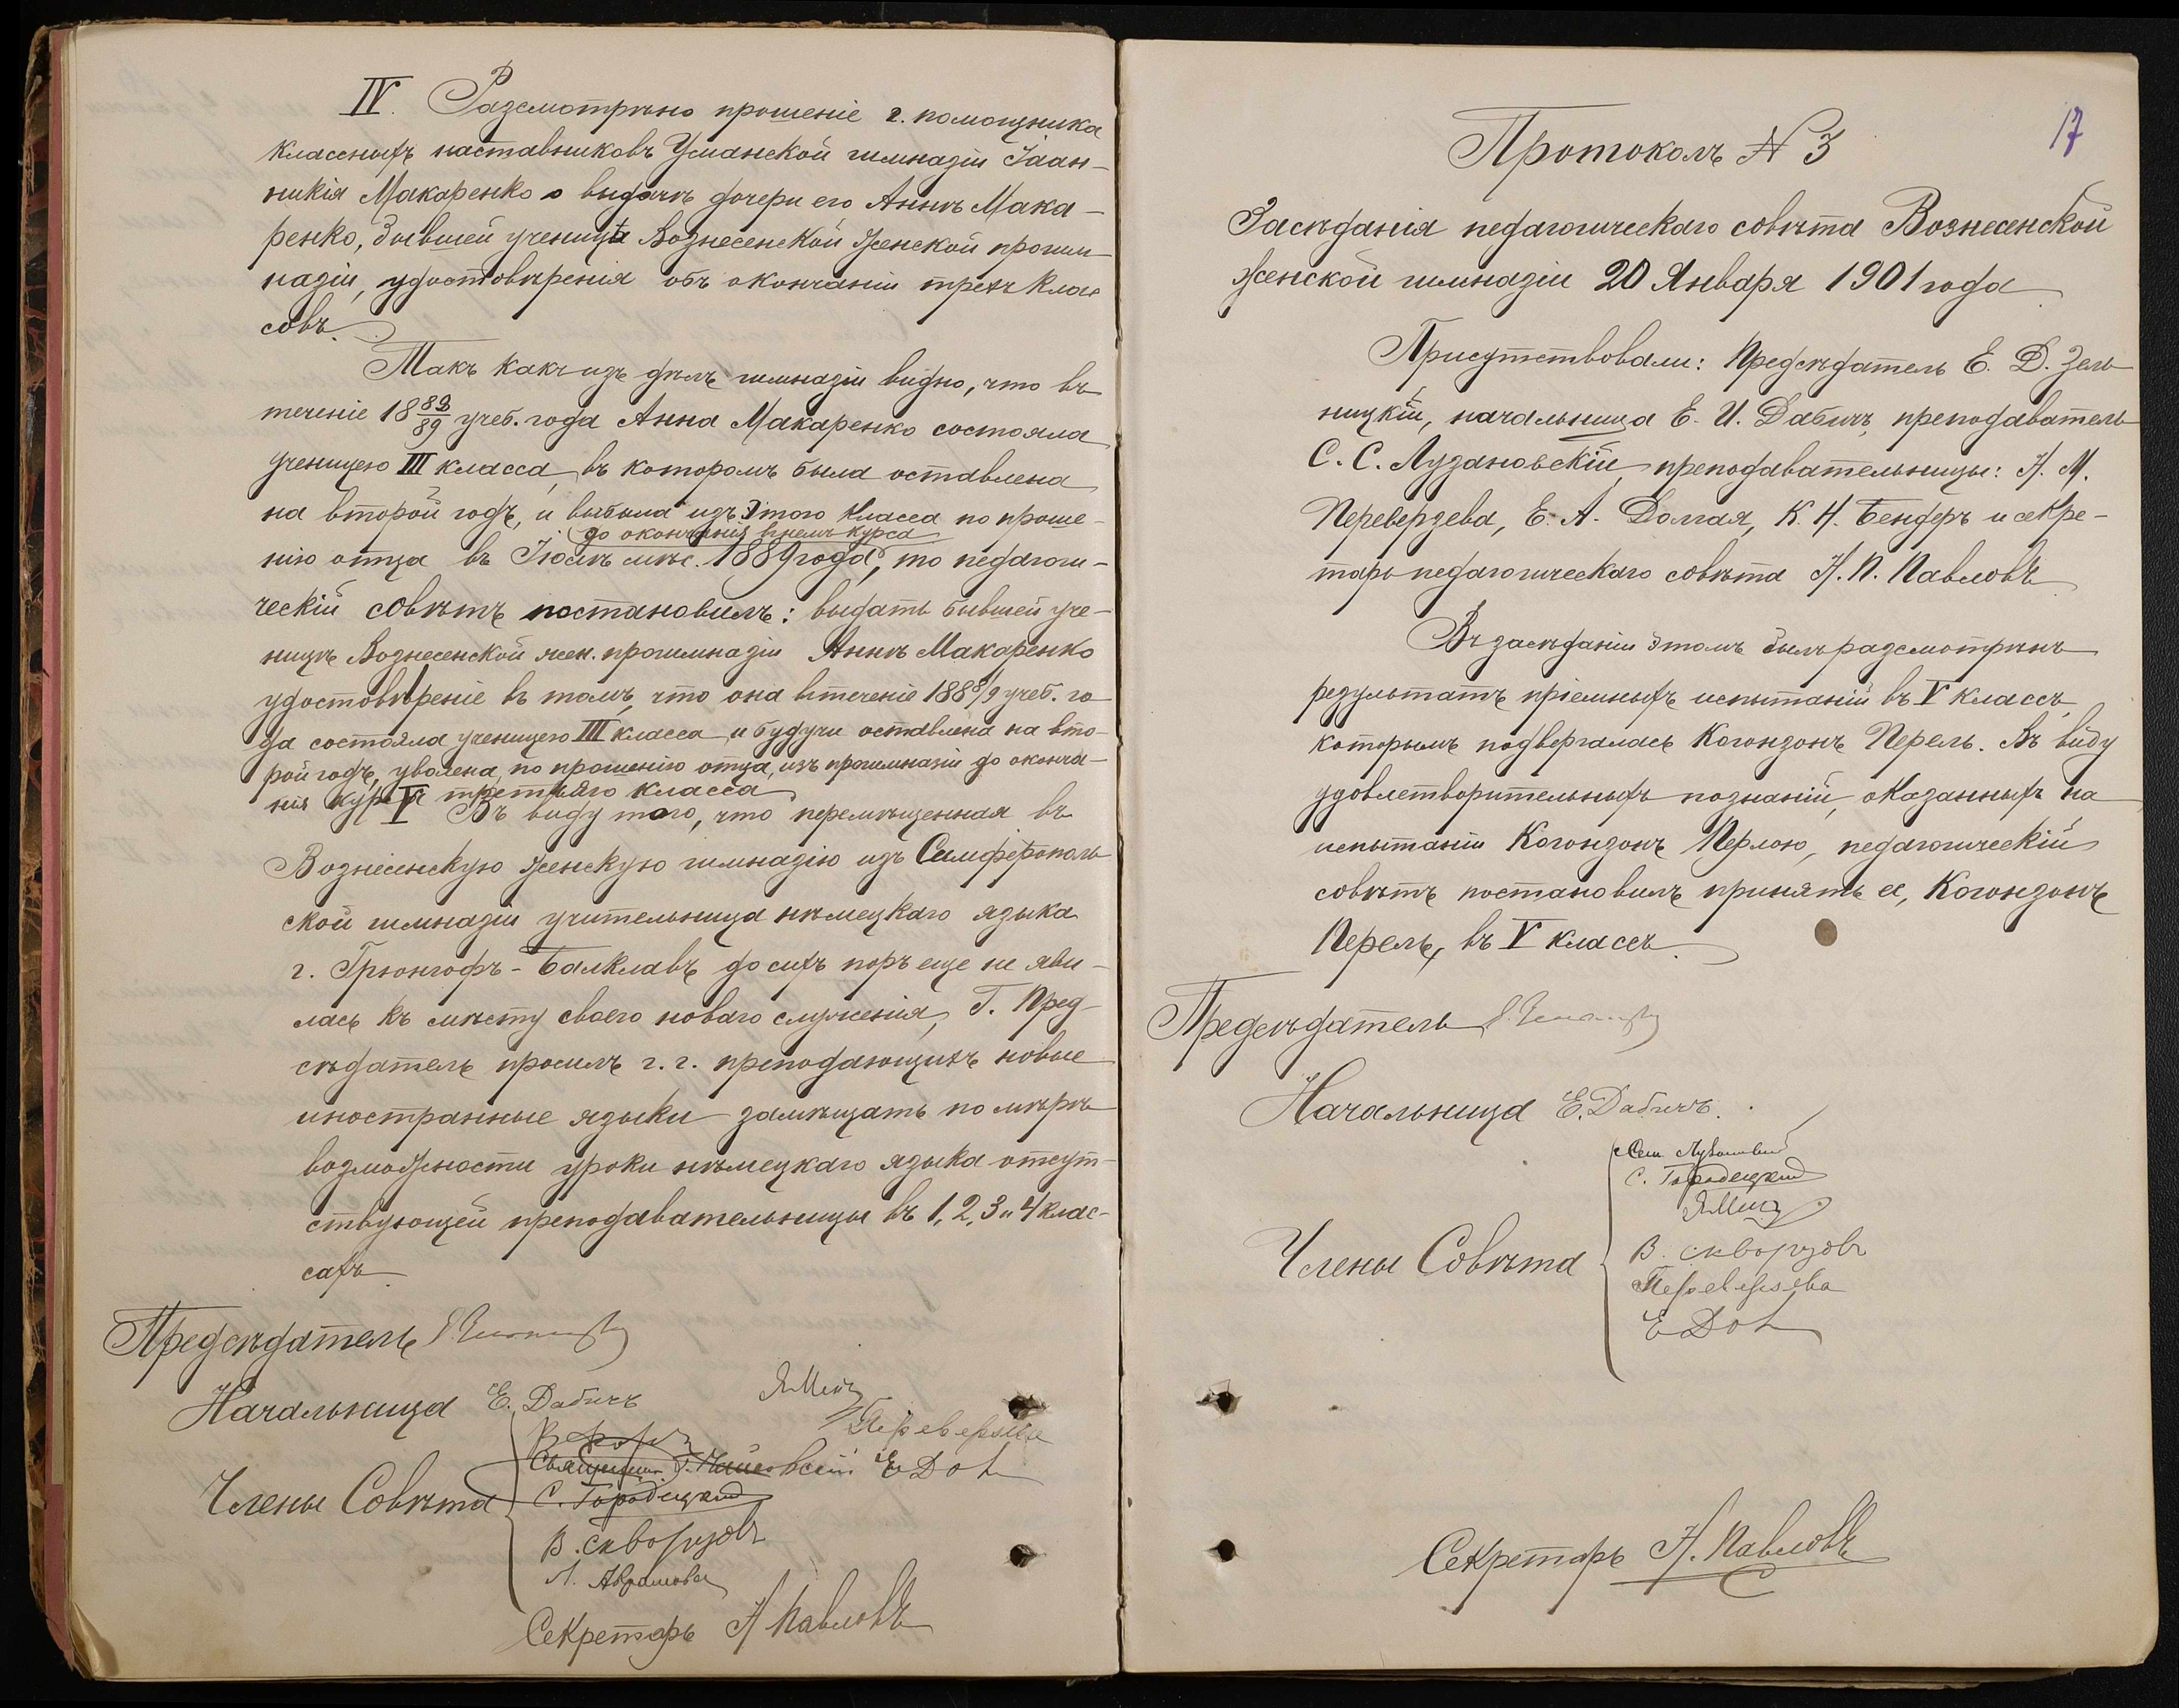 IV. Разсмотрѣно прошеніе г. помощника
классныхъ наставниковъ Уманской гимназіи Іаан-
никія Макаренко о выдачѣ дочери его Аннѣ Мака-
ренко, бывшей ученицѣ Вознесенской женской прогим-
назіи, удостовѣренія объ окончаніи трехъ клас
совъ.
Такъ какъ изъ дѣлъ гимназіи видно, что въ
теченіе 18 88/89 учеб. года Анна Макаренко состояла
ученицею III класса, въ которомъ была оставлена
на второй годъ, и выбыла изъ этого класса по проше-
до окончанія въ немъ курса
нію отца въ Іюлѣ мѣс. 1889 года, то педагоги-
ческій совѣтъ постановилъ: выдать бывшей уче-
ницѣ Вознесенской жен. прогимназіи Аннѣ Макаренко
удостовѣреніе въ томъ, что она втеченіе 1888/9 учеб. го
да состояла ученицею III класса и будучи оставлена на вто-
рой годъ, уволена, по прошенію отца, изъ прогимназіи до оконча-
нія курса третьяго класса
V Въ виду того, что перемѣщенная въ
Вознесенскую женскую гимназію изъ Симферополь
ской гимназіи учительница нѣмецкаго языка
г. Грюнгофъ-Балклавъ до сихъ поръ еще не яви-
лась къ мѣсту своего новаго служенія, Г. Пред-
сѣдатель просилъ г. г. преподающихъ новые
иностранные языки замѣщать по мѣрѣ
возможности уроки нѣмецкаго языка отсут-
ствующей преподавательницы въ 1, 2, 3 и 4 клас-
сахъ
Предсѣдатель
Начальница Е. Дабичъ
Переверзева
Е Дол
Члены Совѣта С. Городецкій
В. Скворцовъ
Л. Абрамова
Секретарь Н Павловъ
17
Протоколъ N 3
Засѣданія педагогическаго совѣта Вознесенской
женской гимназіи 20 Января 1901 года
Присутствовали: Предсѣдатель Е. Д. Зель
ницкій, начальница Е. И. Дабичъ, преподаватель
С. С. Лузановскій, преподавательницы: Н. М.
Переверзева, Е. А. Долгая, К. Н. Бендеръ и секре-
тарь педагогическаго совѣта Н. П. Павловъ
Въ засѣданіи этомъ былъ разсмотрѣнъ
результатъ пріемныхъ испытаній въ V классъ,
которымъ подвергалась Когонзонъ Перель. Въ виду
удовлетворительныхъ познаній, оказанныхъ на
испытаніи Когонзонъ Перлою, педагогическій
совѣтъ постановилъ принять ее, Когонзонъ
Перель, въ V классъ.
Предсѣдатель
Начальница Е. Дабичъ.
С. Городецкій
Члены Совѣта В. Скворцовъ
Переверзева
Е Дол
Секретарь Н. Павловъ